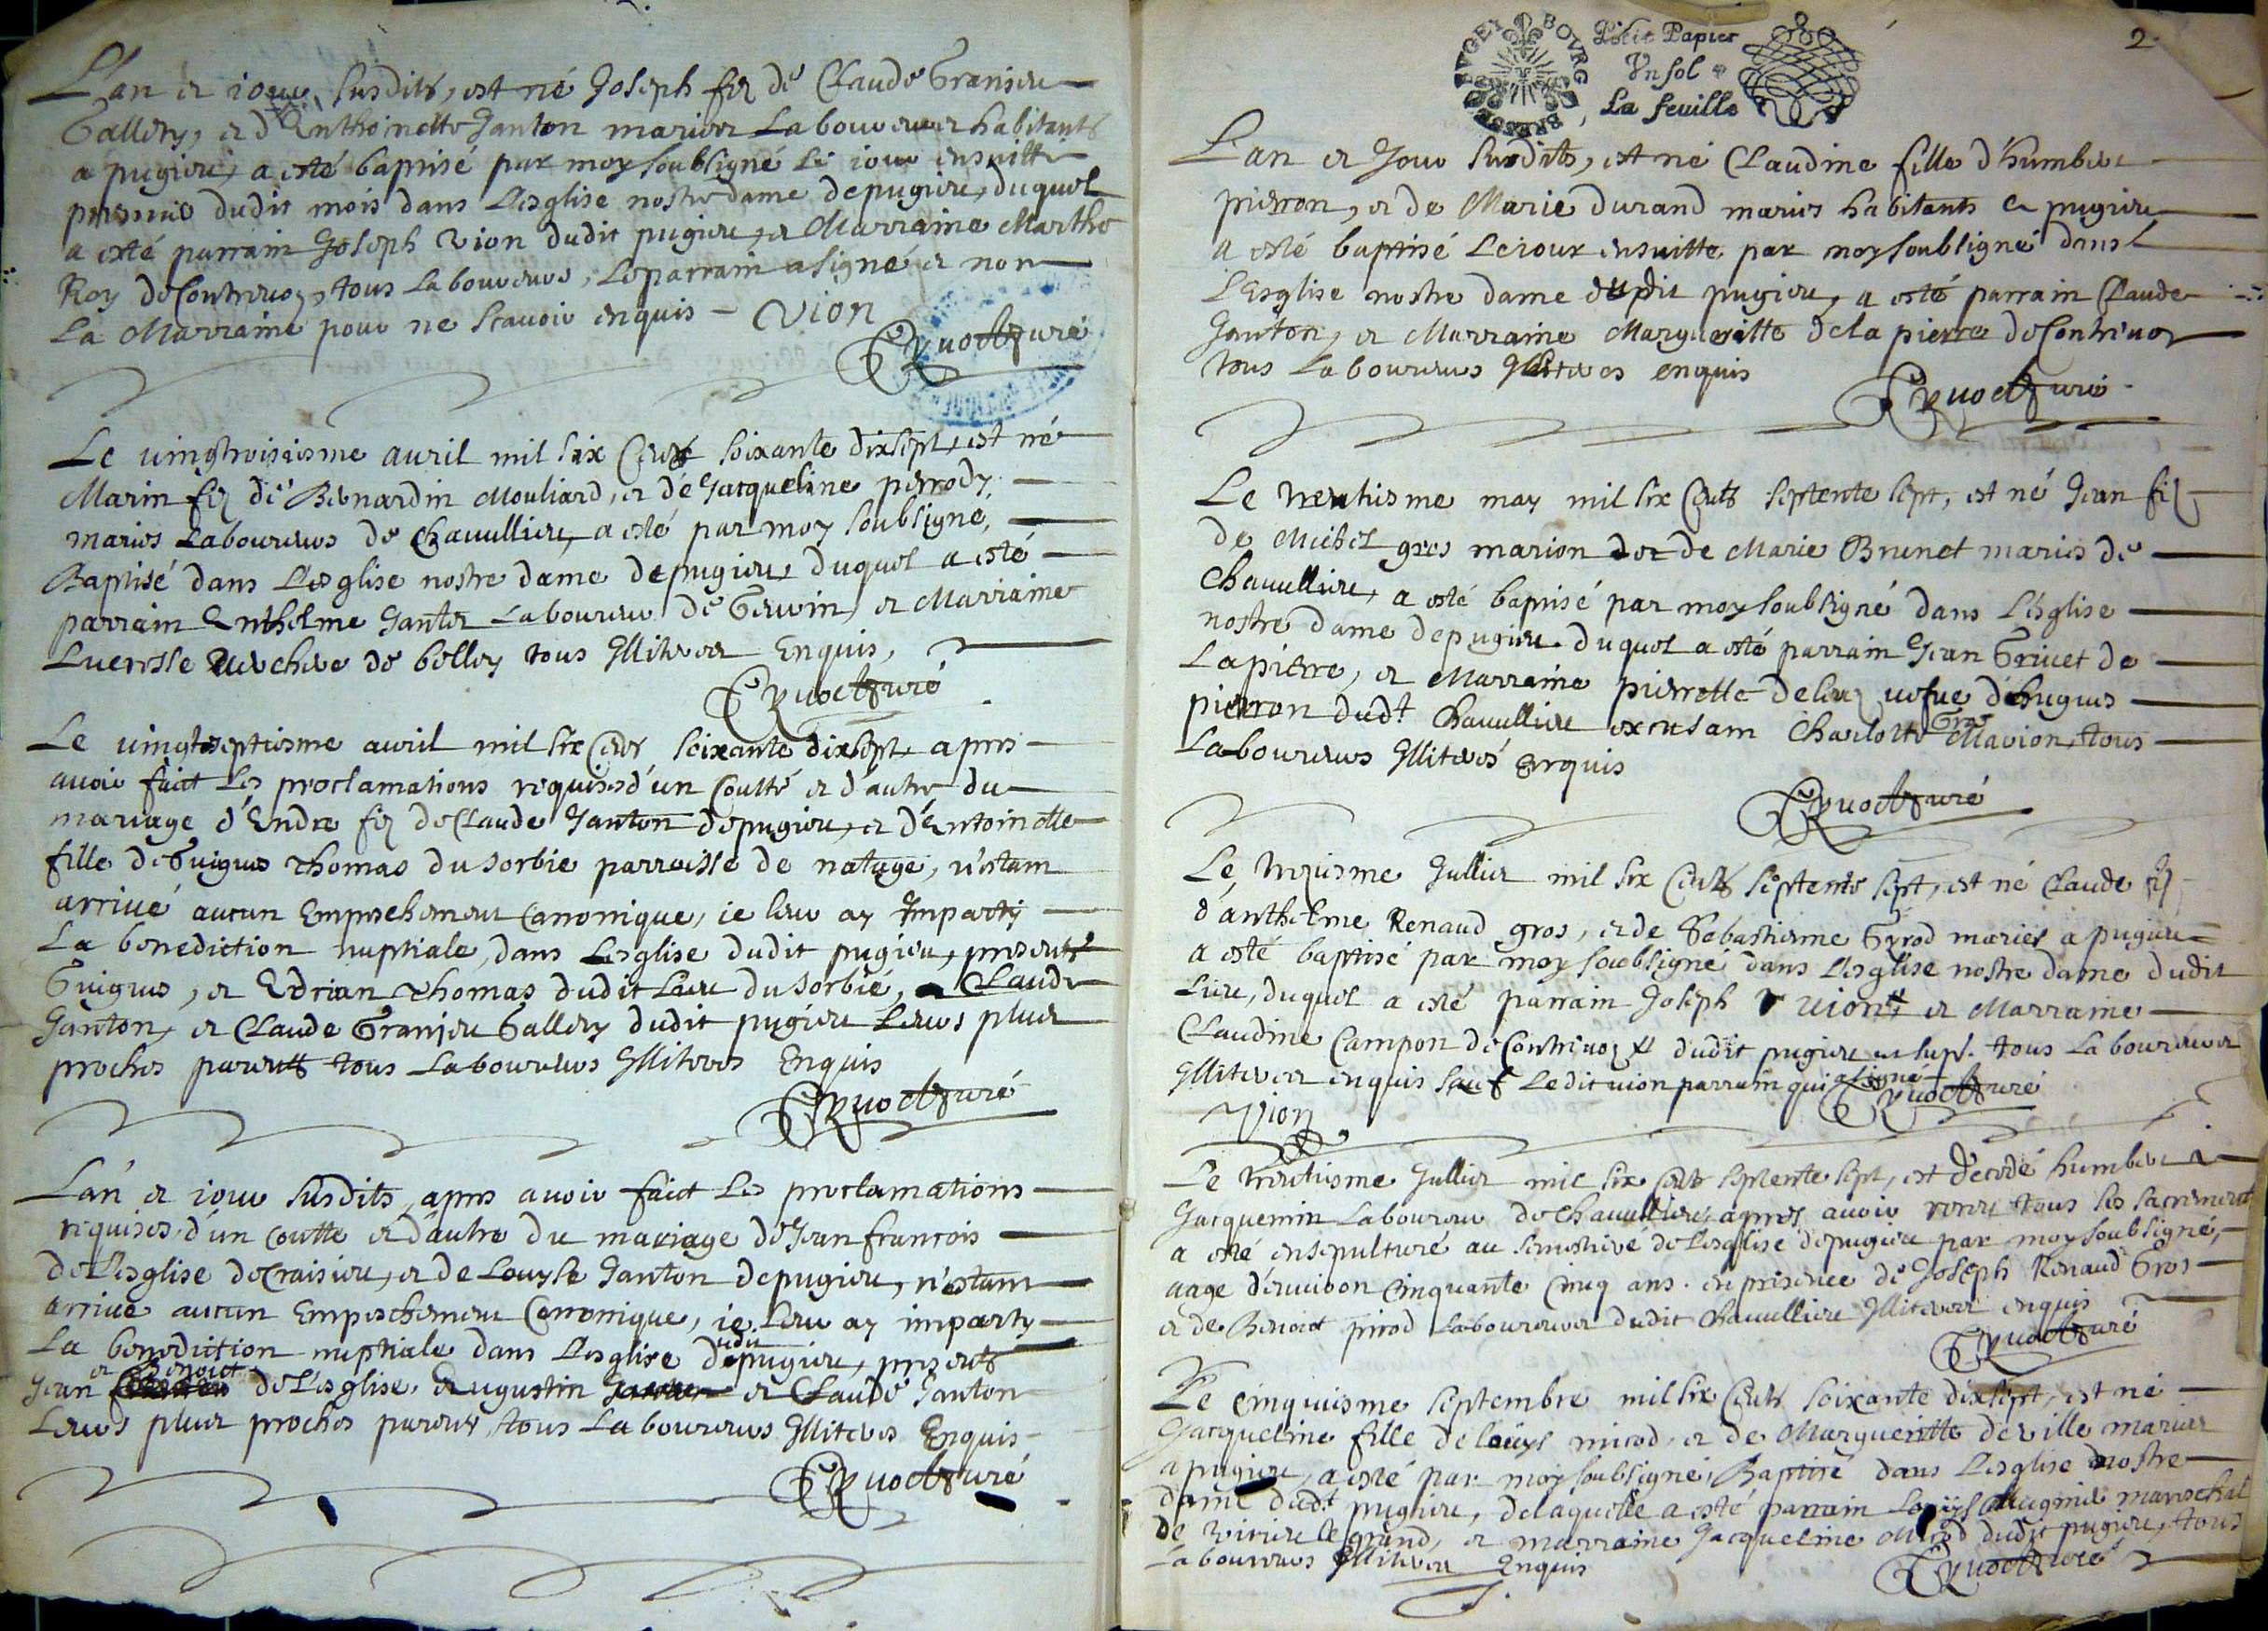 L'an et iour susdits, est né Joseph filz de Claude Granjeu
Gallery, et d'Enthoinette Janton mariez Laboureurs habitants
a pugieu, a esté baptisé par moy soubsigné le iour ensuitte
premier dudit mois dans L'esglise nostre dame de pugieu, duquel
a esté parrain Joseph Vion dudit pugieu, et Marraine Marthe
Roy de Contrevoz, tous laboureurs, Le parrain a signé et non
La Marraine pour ne scavoir enquis - Vion
curé
Le vingtroisiesme auril mil six Cents soixante dixsept, est né
Marin filz de Bernardin Mouliard, et de Jacqueline perrody,
mariés Laboureurs de Chauullieu, a esté par moy soubsigné,
Baptisé dans L'esglise nostre dame de pugieu, duquel a esté
parrain Enthelme Janton Laboureur de et Marraine
de belley tous Illiteres Enquis,
curé
Le vingtseptiesme auril mil six Cents soixante dixsept, apres
auoir faict les proclamations requises d'un Coutté et d'autre du
mariage d'Endre filz de Claude Janton de pugieu, et d'Entoinette
fille de Guigues Thomas du sorbie parroisse de natage, n'estant
arriué aucun Empeschement Canonique, ie leur ay Imparty
La benediction nuptiale, dans L'esglise dudit pugieu, presents
Guigues, et Edrian Thomas dudit Lieu du sorbie, Claude
Janton, et Claude Granjeu Gallery dudit pugieu Leurs plus
proches parents tous Laboureurs Illiteres Enquis
curé
L'an et iour susdits, apres auoir faict Les proclamations
requises, d'un coutte et d'autre du mariage de Jean francois
de L'esglise de Craisieu, et de Louyse Janton de pugieu, n'estant
arriué aucun Empeschement Canonique, ie Leur ay imparty
La benediction nuptiale dans L'esglise dudit pugieu, presents
Jean et Benoict de L'esglise, Eugustin et Claude Janton
Leurs plus proches parents, tous Laboureurs Illiteres Enquis
curé
BVGEY BOVRG BRESSE
Petit Papier
Vn sol
La feuille
2
L'an et Jour susdits, est né Claudine fille d'humbert
pierron, et de Marie durand mariés habitants a pugieu
a esté baptisé Le iour ensuitte, par moy soubsigné dans
L'Esglise nostre dame dudit pugieu, a esté parrain Claude
Janton, et Marraine Margueritte de la pierre de Contrevoz
tous Laboureurs Illiteres enquis
curé
Le trentiesme may mil six Cents septente sept, est né Jean filz
de Michel gros marion et de Marie Brunet mariés de
Chauullieu, a esté baptisé par moy soubsigné dans L'esglise
nostre dame de pugieu, duquel a esté parrain Jean Griuet de
Lapierre, et Marraine pierrette vefue d'hugues
pierron dudt Chauullieu Charlotte Gros Marion, tous
Laboureurs Illiteres Enquis
curé
Le Jullier mil six Cents septente sept, est né Claude filz
d'anthelme Renaud gros, et de Sebastienne Gyrod mariés a pugieu
a esté baptisé par moy soubsigné dans L'esglise nostre dame dudit
Lieu, duquel a esté parrain Joseph vion et Marraine
Claudine Campon de Contrevoz dudit pugieu tous Laboureurs
Illiteres enquis sauf Ledit vion parrain qui a signé
Vion curé
Le trentiesme Jullier mil six Cents septente sept, est décedé humbert
Jacquemin Laboureur de Chauullieu, apres auoir receu tous les sacrements
a esté ensepulturé au de L'esglise de pugieu par moy soubsigné,
aage d'enuiron Cinquante Cinq ans. en presence de Joseph Renaud Gros
et de Benoict pirod Laboureurs dudit Chauullieu Illiteres enquis
curé
Le cinquiesme septembre mil six Cents soixante dixsept, est né
Jacqueline fille de Louys mirod, et de Margueritte deville mariés
a pugieu, a esté par moy soubsigné, Baptisé dans L'esglise nostre
dame dudt pugieu, de laquelle a esté parrain Louys mareschal
de Virieu le grand, et marraine Jacqueline Mirod dudit pugieu, tous
Laboureurs Illiteres Enquis
curé